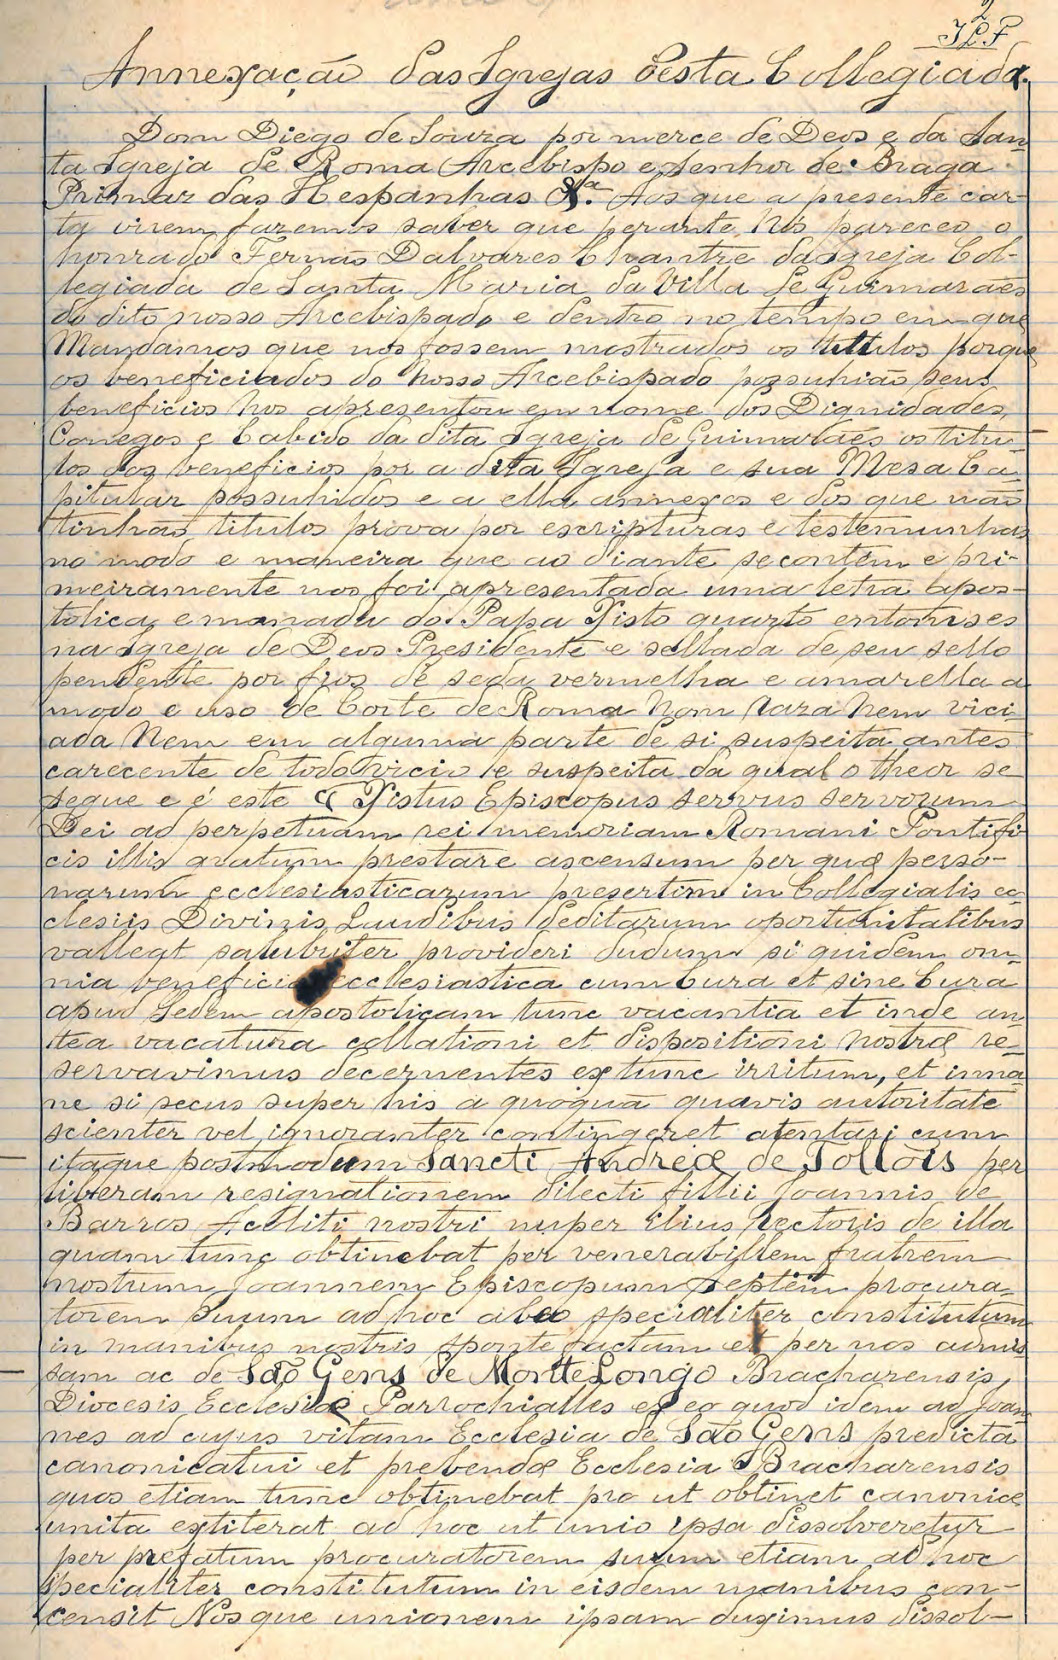 2
JLF
Annexação das Igrejas desta Collegiada.
Dom Diego de Souza por merce de Deos e da San
ta Igreja de Roma Arcebispo e Senhor de Braga
Primaz das Hespanhas &ª. Aos que a presente car-
ta virem fazemos saber que perante Nós pareceo o
honrado Fernão Dalvares Chantre da Igreja Col-
legiada de Santa Maria da Villa de Guimaraẽs
do dito nosso Arcebispado e dentro no tempo em que
Mandamos que nos fossem mostrados os titulos porque
os beneficiados do nosso Arcebispado possuhião seus
beneficios nos apresentou em nome dos Dignidades,
Conegos e Cabido da dita Igreja de Guimaraẽs os titu-
los dos beneficios por a dita Igreja e sua Mesa Ca-
pitular possuhidos e a ella annexos e dos que não
tinhão titulos prova por escripturas e testemunhas
no modo e maneira que ao diante se contem e pri-
meiramente nos foi apresentada uma letra apos-
tolica, emanada do Papa Xisto quarto entonses
na Igreja de Deos Presidente e sellada de seu sello
pendente por fios de seda vermelha e amarella a
modo e uso de Corte de Roma Nom raza Nem vici
ada Nem em alguma parte de si suspeita antes
carecente de todo vicio e suspeita da qual o theor se
segue e é este Xistus Episcopus servus servorum
Dei ad perpetuam rei memoriam Romani Pontifi
cis illis gratum prestare ascensum per quæ perso-
narum ecclesiasticarum presertim in Collegialis ec
clesiis Divinis Laudibus deditarum oportunitatibus
valleat salubriter provideri Dudum si quidem om-
nia beneficia ecclesiastica cum Cura et sine Cura
apud Sedem apostolicam tunc vacantia et inde an
tea vacatura collationi et dispositioni nostræ re-
servavimus decernentes ex tunc irritum, et inna-
ne si secus super his a quoquā quavis autoritate
scienter vel ignoranter contingeret atentari cum
itaque postmodum Sancti Andreæ de Tollois per
liberam resignationem dilecti fillii Joannis de
Barros Acoliti nostri nuper ilius rectoris de illa
quam tunc obtinebat per venerabillem fratrem
nostrum Joannem Episcopum Septem procura-
torem suum ad hoc ab eo specialiter constitutum
in manibus nostris sponte factam et per nos admis
sam ac de São Gens de Monte Longo Bracharensis,
Diocesis Ecclesiæ Parrochialles ex eo quod idem ad Joan
nes ad cujus vitam Ecclesia de São Gens predicta
canonicatui et prebendæ Ecclesia Bracharensis
quos etiam tunc obtinebat pro ut obtinet canonice
unita extiterat ad hoc ut unio ipsa dissolveretur
per prefatum procuratorem suum etiam ad hoc
specialiter constitutum in eisdem manibus con-
censit Nos que unionem ipsam duximus dissol-